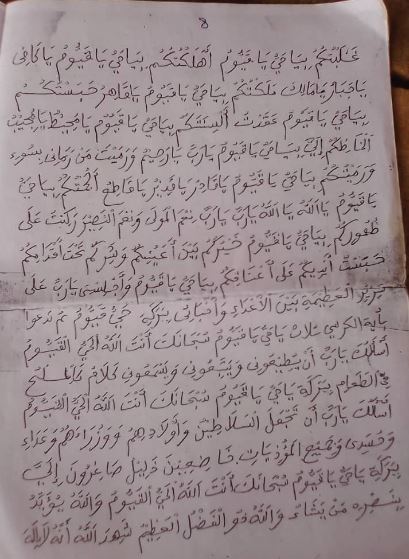 8
غَلَبْتُكُمْ بِيَاحَيُّ يَا قَيُّومُ أَهْلَكْتُكُمْ بِيَاحَيُّ يَا قَيُّومُ يَا كَافِي
يَا جَبَّارُ يَا مَالِكُ مَلَكْتُكُمْ بِيَاحَيُّ يَا قَيُّومُ يَا قَاهِرُ حَبَسْتُكُمْ
بِيَاحَيُّ يَا قَيُّومُ عَقَدْتُ أَلْسِنَتَكُمْ بِيَاحَيُّ يَا قَيُّومُ يَا مُحِيطُ يَا مُجِيبُ
إِلَيَّ بِيَاحَيُّ يَا قَيُّومُ يَا رَبِّ يَا رَحِيمُ وَرَمَيْتُ مَنْ رَمَانِي بِسُوءٍ
وَرَمَيْتُكُمْ بِيَاحَيُّ يَا قَيُّومُ يَا قَادِرُ يَا قَدِيرُ يَا قَاطِعُ بِيَاحَيُّ
يَا قَيُّومُ يَا اللَّهُ يَا اللَّهُ يَا رَبِّ يَا رَبِّ نِعْمَ الْمَوْلَى وَنِعْمَ النَّصِيرُ رَكِبْتُ عَلَى
ظُهُورِكُمْ بِيَاحَيُّ يَا قَيُّومُ خَيْرُكُمْ بَيْنَ أَعْيُنِكُمْ وَشَرُّكُمْ تَحْتَ أَقْدَامِكُمْ
حَبَسْتُ أَيْدِيكُمْ عَلَى أَعْنَاقِكُمْ بِيَاحَيُّ يَا قَيُّومُ يَا رَبِّ عَلَى
الْعَظِيمَةِ بَيْنَ الْأَعْدَاءِ بِبَرَكَةِ حَيٍّ قَيُّومٍ ثُمَّ تَدْعُوا
بِأَيَةِ الْكُرْسِي ثَلَاثَ يَا حَيُّ يَا قَيُّومُ سُبْحَانَكَ أَنْتَ اللَّهُ الْحَيُّ الْقَيُّومُ
أَسْأَلُكَ يَا رَبِّ أَنْ يُطِيعُونِي وَيَتَّبِعُونِي وَيَسْمَعُونَ كَلَامِي كَالْمِلْحِ
فِي الطَّعَامِ بِبَرَكَةِ يَا حَيُّ يَا قَيُّومُ سُبْحَانَكَ أَنْتَ اللَّهُ الْحَيُّ الْقَيُّومُ
أَسْأَلُكَ يَا رَبِّ أَنْ تَجْعَلَ السَّلَاطِينَ وَأَوْلَادَهُمْ وَوُزَرَاءَهُمْ وَعَدَاءِ
وَحُسَّدِي وَجَمِيعَ الْمُؤْذِيَاتِ خَاضِعِينَ ذَلِيلَ صَاغِرُونَ إِلَيَّ
بِبَرَكَةِ يَا حَيُّ يَا قَيُّومُ سُبْحَانَكَ أَنْتَ اللَّهُ الْحَيُّ الْقَيُّومُ وَاللَّهُ يُؤَيِّدُ
بِنَصْرِهِ مَنْ يَشَاءُ وَاللَّهُ ذُو الْفَضْلِ الْعَظِيمِ شَهِدَ اللَّهُ أَنَّهُ لَا إِلَهَ